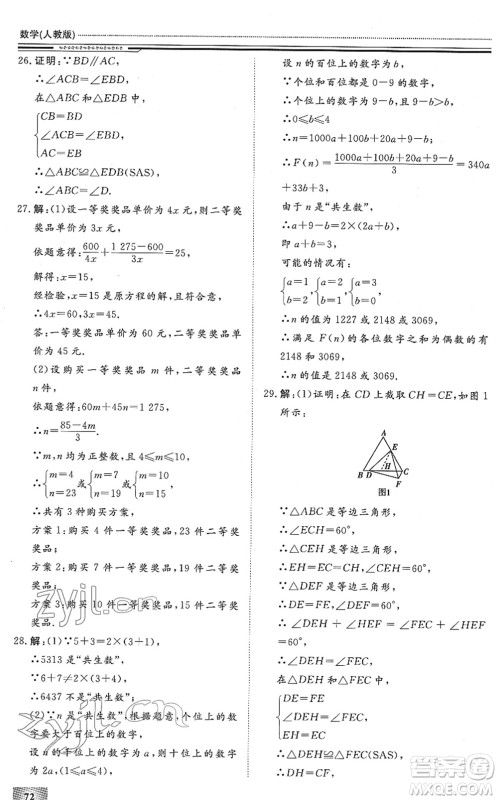 数学(人教版)
26.证明:∵BD∥AC,
∴∠ACB=∠EBD,
在△ABC和△EDB中,
CB=BD
∠ACB=∠EBD,
AC=EB
∴△ABC≌△EDB(SAS),
∴AB=ED.
27.解:(1)设一等奖奖品单价为4x元,则二等奖
奖品单价为3x元,
依题意得:600/4x+(1 275-600)/3x=25,
解得:x=15,
经检验,x=15是原方程的解,且符合题意,
∴4x=60,3x=45.
答:一等奖奖品单价为60元,二等奖奖品
单价为45元.
(2)设购买一等奖奖品m件,二等奖奖品
n件,
依题意得:60m+45n=1 275,
∴n=(85-4m)/3.
∵m,n均为正整数,且4≤m≤10,
∴{m=4 n=23 或{m=7 n=19 或{m=10 n=15,
∴共有3种购买方案,
方案1:购买4件一等奖奖品,23件二等奖
奖品;
方案2:购买7件一等奖奖品,19件二等奖
奖品;
方案3:购买10件一等奖奖品,15件二等奖
奖品.
28.解:(1)∵5+3=2×(3+1),
∴5313是“共生数”,
∵6+7≠2×(3+4),
∴6437不是“共生数”;
(2)∵n是“共生数”,根据题意,个位上的数
字要大于百位上的数字,
设n的千位上的数字为a,则十位上的数字
为2a,(1≤a≤4),
设n的百位上的数字为b,
∵个位和百位都是0-9的数字,
∴个位上的数字为9-b,且9-b>b,
∴0≤b≤4
∴n=1000a+100b+20a+9-b;
∴F(n)=(1000a+100b+20a+9-b)/3=340a
+33b+3,
由于n是“共生数”,
∴a+9-b=2×(2a+b),
即a+b=3,
可能的情况有:
{a=1 b=2,{a=2 b=1,{a=3 b=0,
∴n的值为1227或2148或3069,
∴满足F(n)的各位数字之和为偶数的有
2148和3069,
∴n的值是2148或3069.
29.解:(1)证明:在CD上截取CH=CE,如图1
所示:
A
E
B D H C
F
图1
∵△ABC是等边三角形,
∴∠ECH=60°,
∴△CEH是等边三角形,
∴EH=EC=CH,∠CEH=60°,
∵△DEF是等边三角形,
∴DE=FE,∠DEF=60°,
∴∠DEH+∠HEF=∠FEC+∠HEF=60°,
∴∠DEH=∠FEC,
在△DEH和△FEC中,
DE=FE
∠DEH=∠FEC,
EH=EC
∴△DEH≌△FEC(SAS),
∴DH=CF,
72